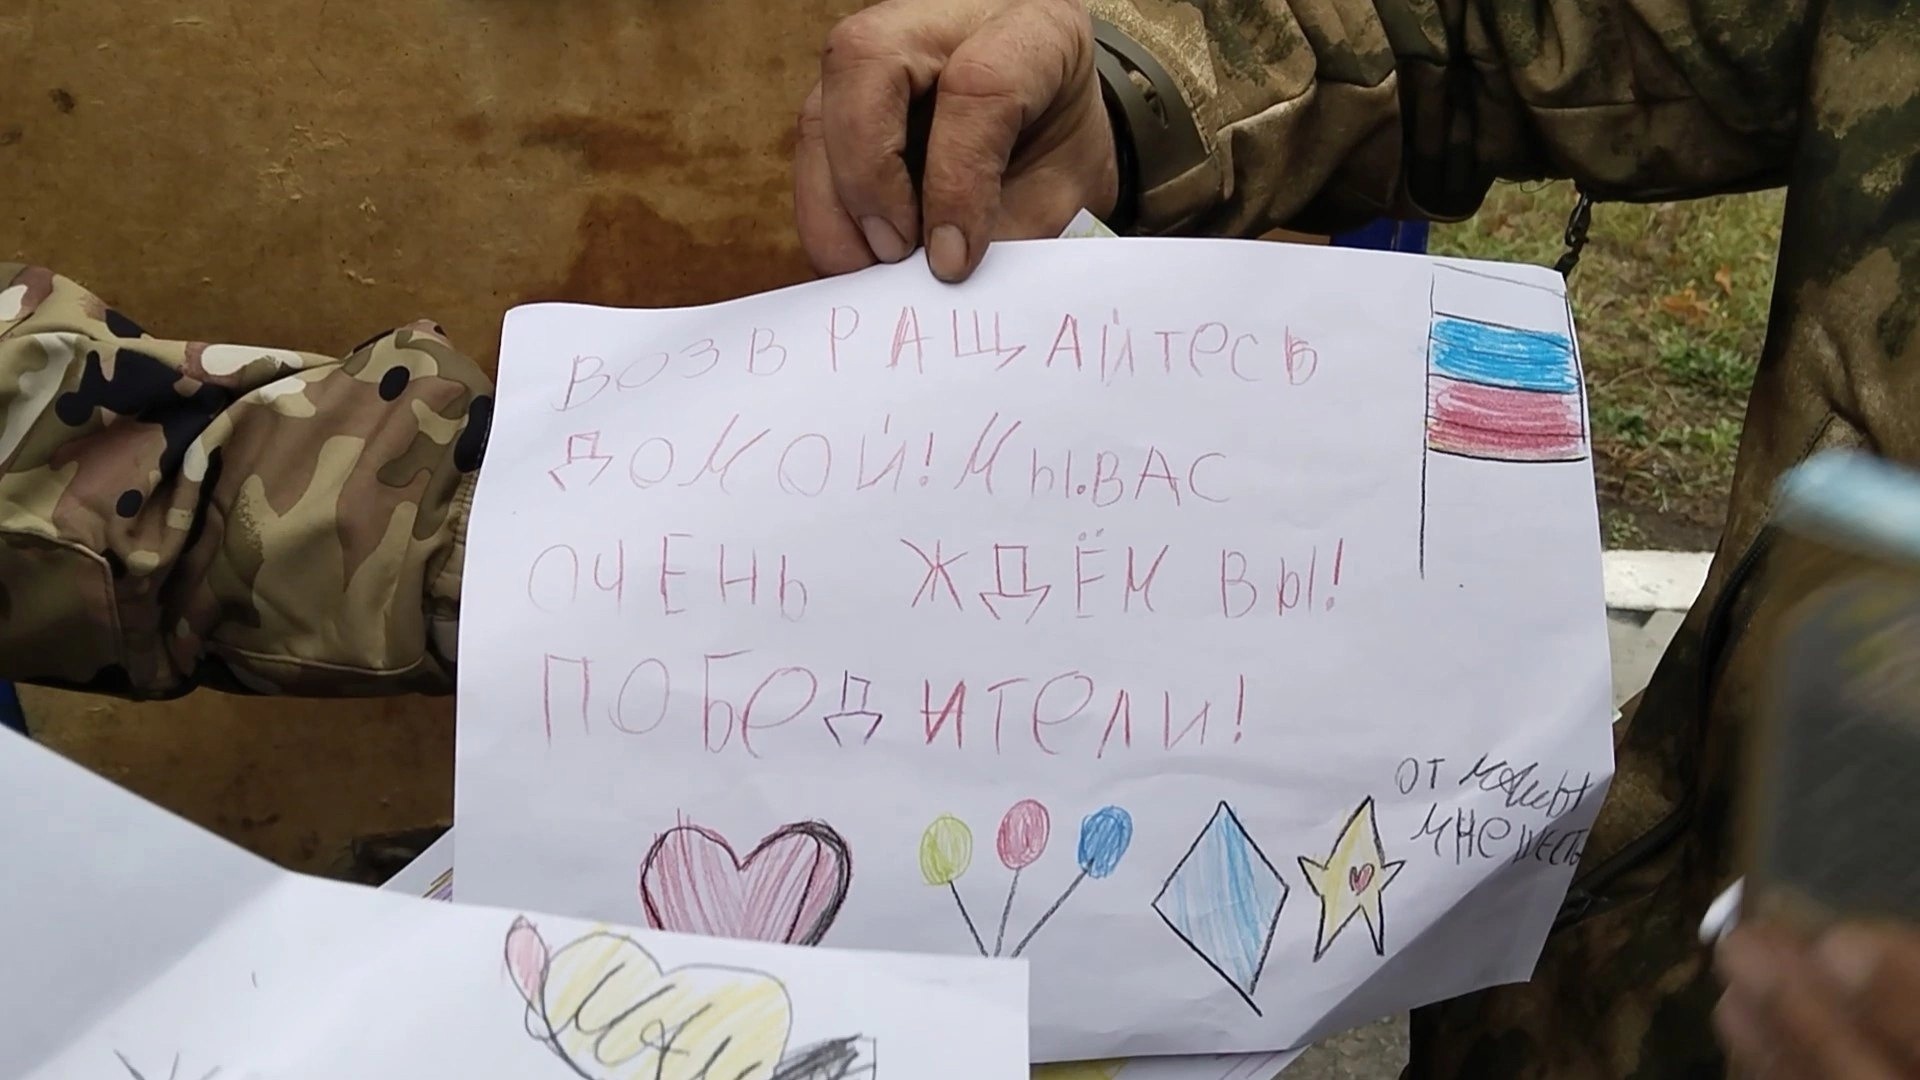 ВОЗВРАЩАЙТЕСЬ
ДОМОЙ! МЫ.ВАС
ОЧЕНЬ ЖДЁМ ВЫ!
ПОБЕДИТЕЛИ!
ОТ
МНЕ ШЕСТЬ